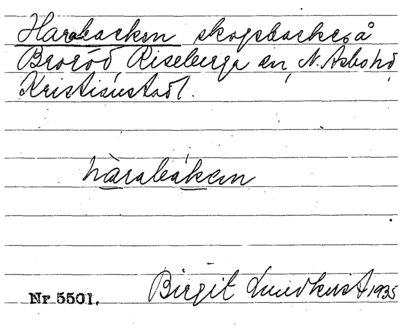 Harabacken skogsbacke, å
Broröd Riseberga sn, N. Åsbo hd
Kristianstad l.
hàrabákен
Nr 5501. Birgit Lundkvist 1935